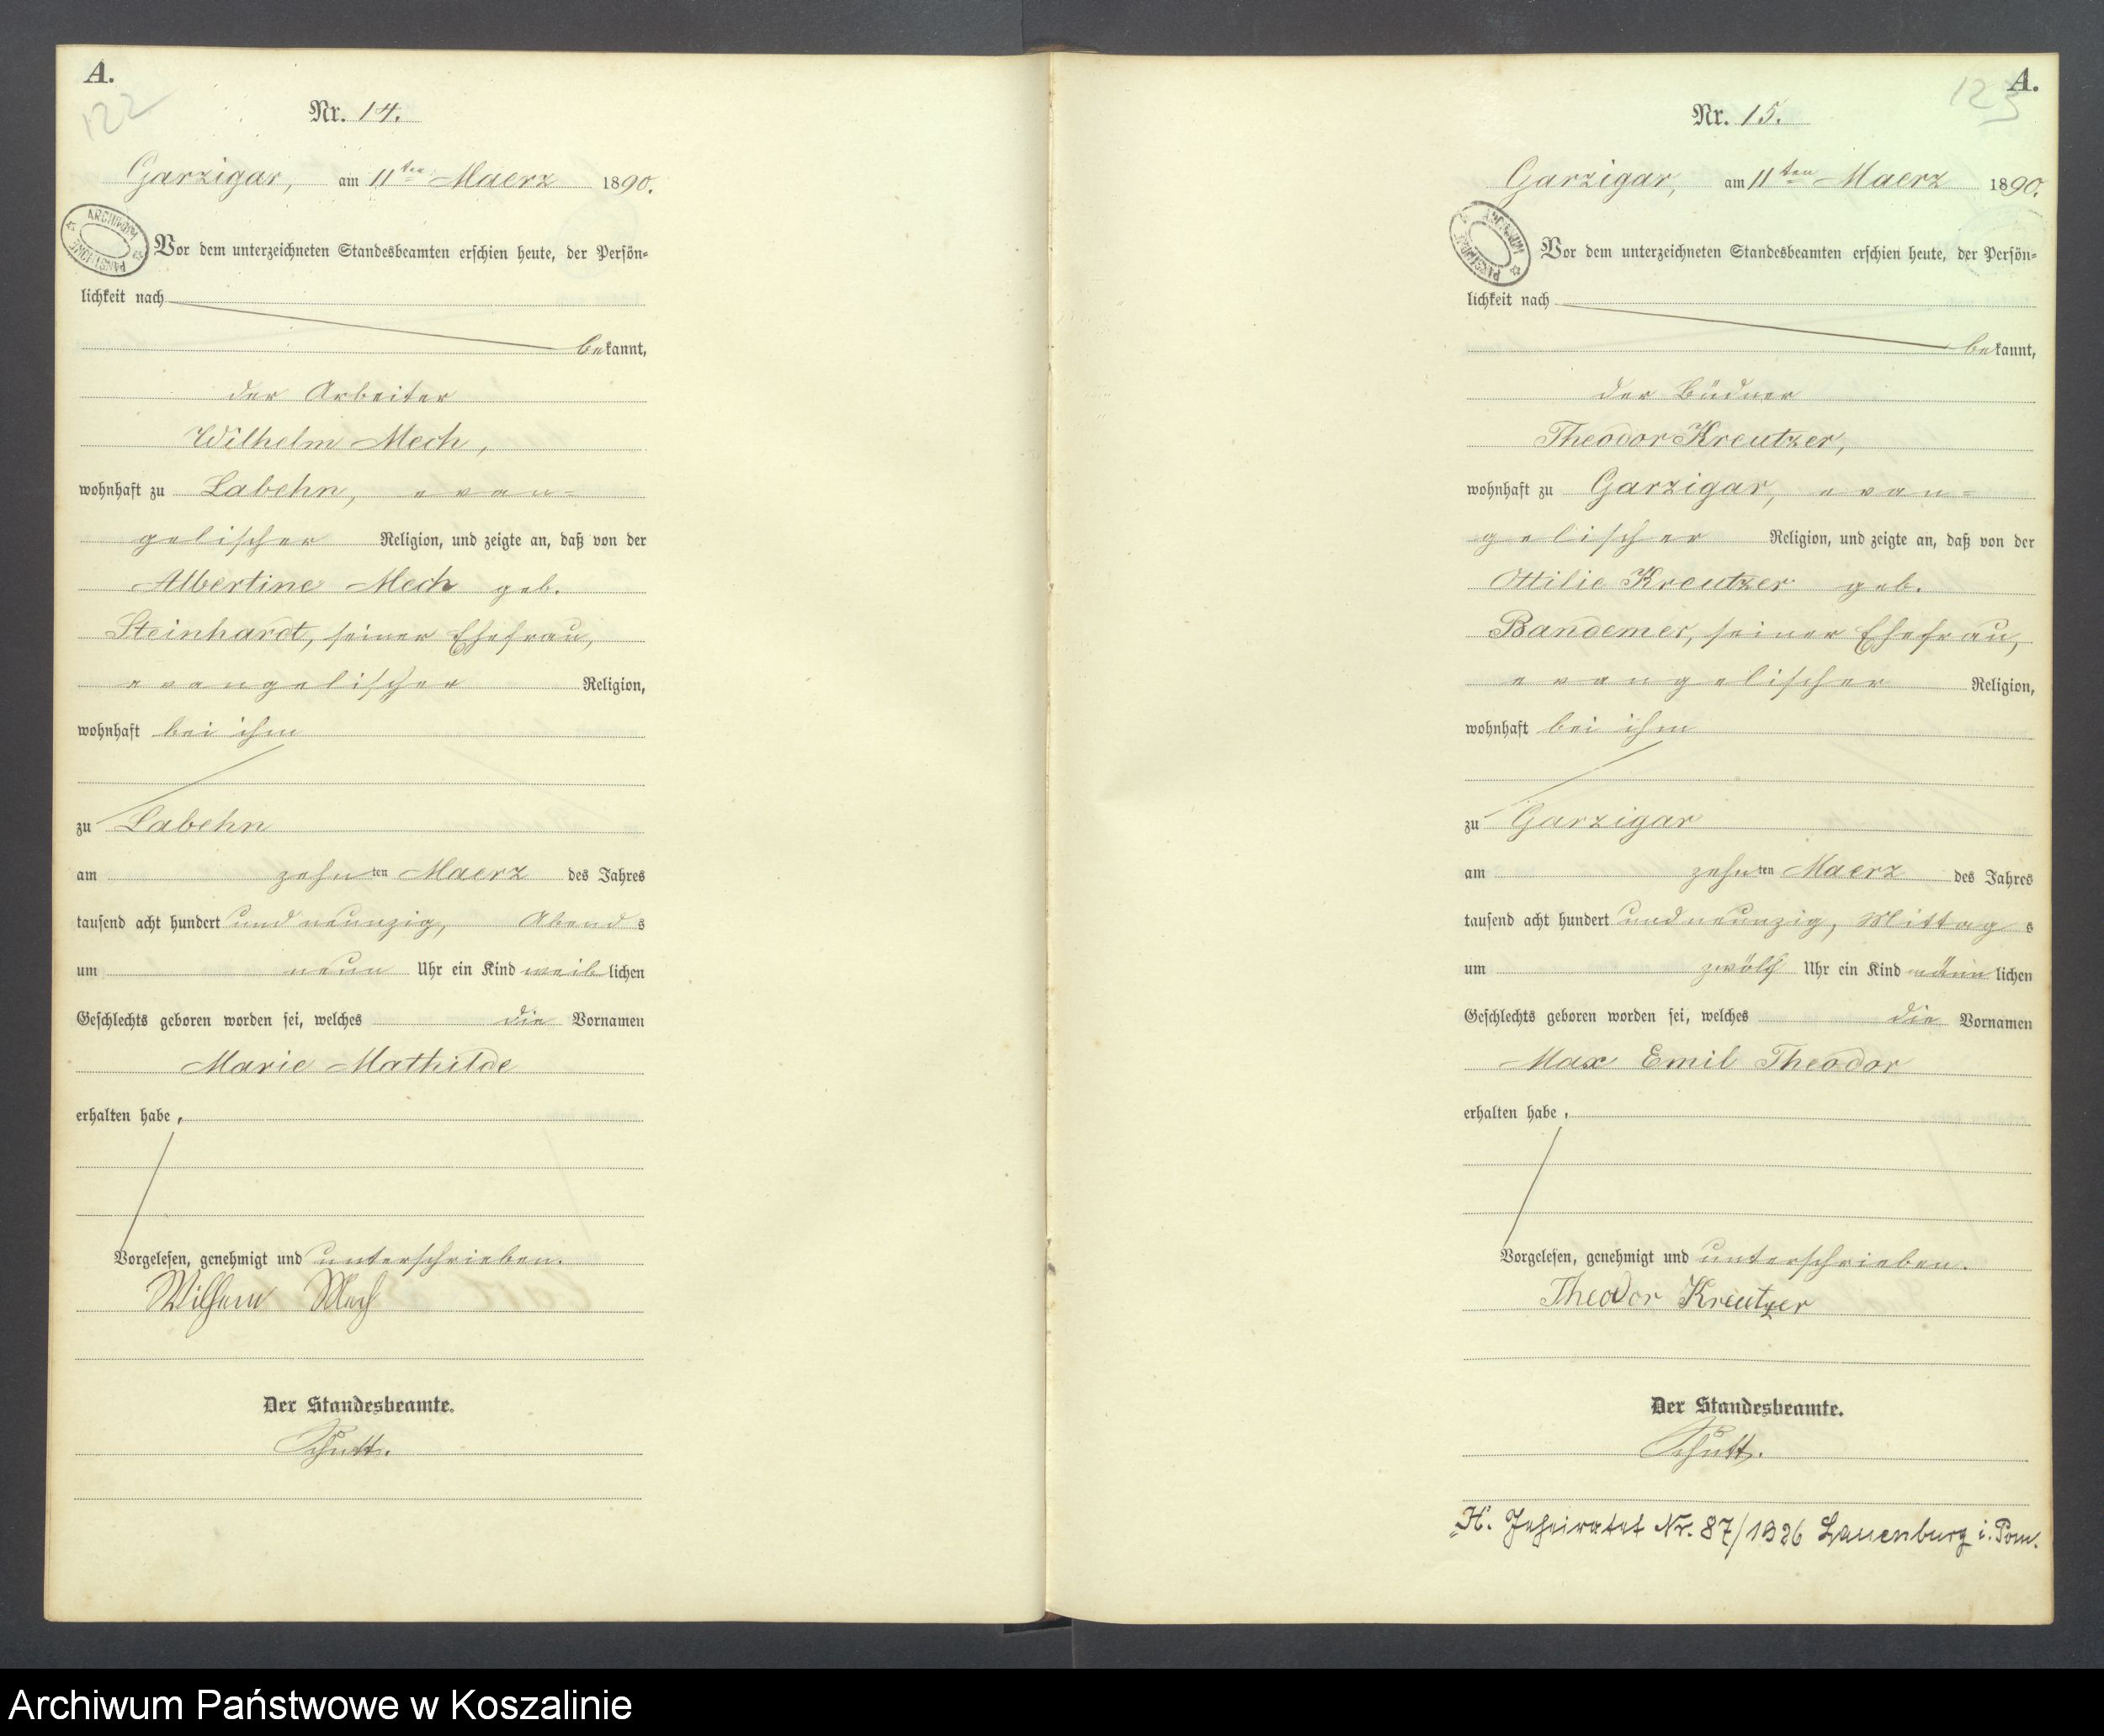 A.
122
Nr. 14.
Garzigar, am 11ten Maerz 1890.
ARCHIWUM PAŃSTWOWE
Vor dem unterzeichneten Standesbeamten erschien heute, der Persön=
lichkeit nach
bekannt,
der Arbeiter
Wilhelm Mech,
wohnhaft zu Labehn, evan=
gelischer Religion, und zeigte an, daß von der
Albertine Mech geb.
Steinhardt, seiner Ehefrau,
evangelischer Religion,
wohnhaft bei ihm
zu Labehn
am zehnten Maerz des Jahres
tausend acht hundert und neunzig, Abends
um neun Uhr ein Kind weiblichen
Geschlechts geboren worden sei, welches die Vornamen
Marie Mathilde
erhalten habe,
Vorgelesen, genehmigt und unterschrieben.
Wilhem Mech
Der Standesbeamte.
Schutt.
A.
123
Nr. 15.
Garzigar, am 11ten Maerz 1890.
ARCHIWUM PAŃSTWOWE
Vor dem unterzeichneten Standesbeamten erschien heute, der Persön=
lichkeit nach
bekannt,
der Büdner
Theodor Kreutzer,
wohnhaft zu Garzigar, evan=
gelischer Religion, und zeigte an, daß von der
Ottilie Kreutzer geb.
Bandemer, seiner Ehefrau,
evangelischer Religion,
wohnhaft bei ihm
zu Garzigar
am zehnten Maerz des Jahres
tausend acht hundert und neunzig, Mittags
um zwölf Uhr ein Kind männlichen
Geschlechts geboren worden sei, welches die Vornamen
Max Emil Theodor
erhalten habe,
Vorgelesen, genehmigt und unterschrieben.
Theodor Kreutzer
Der Standesbeamte.
Schutt.
H. Geheiratet Nr. 87/1926 Lauenburg i. Pom.
Archiwum Państwowe w Koszalinie